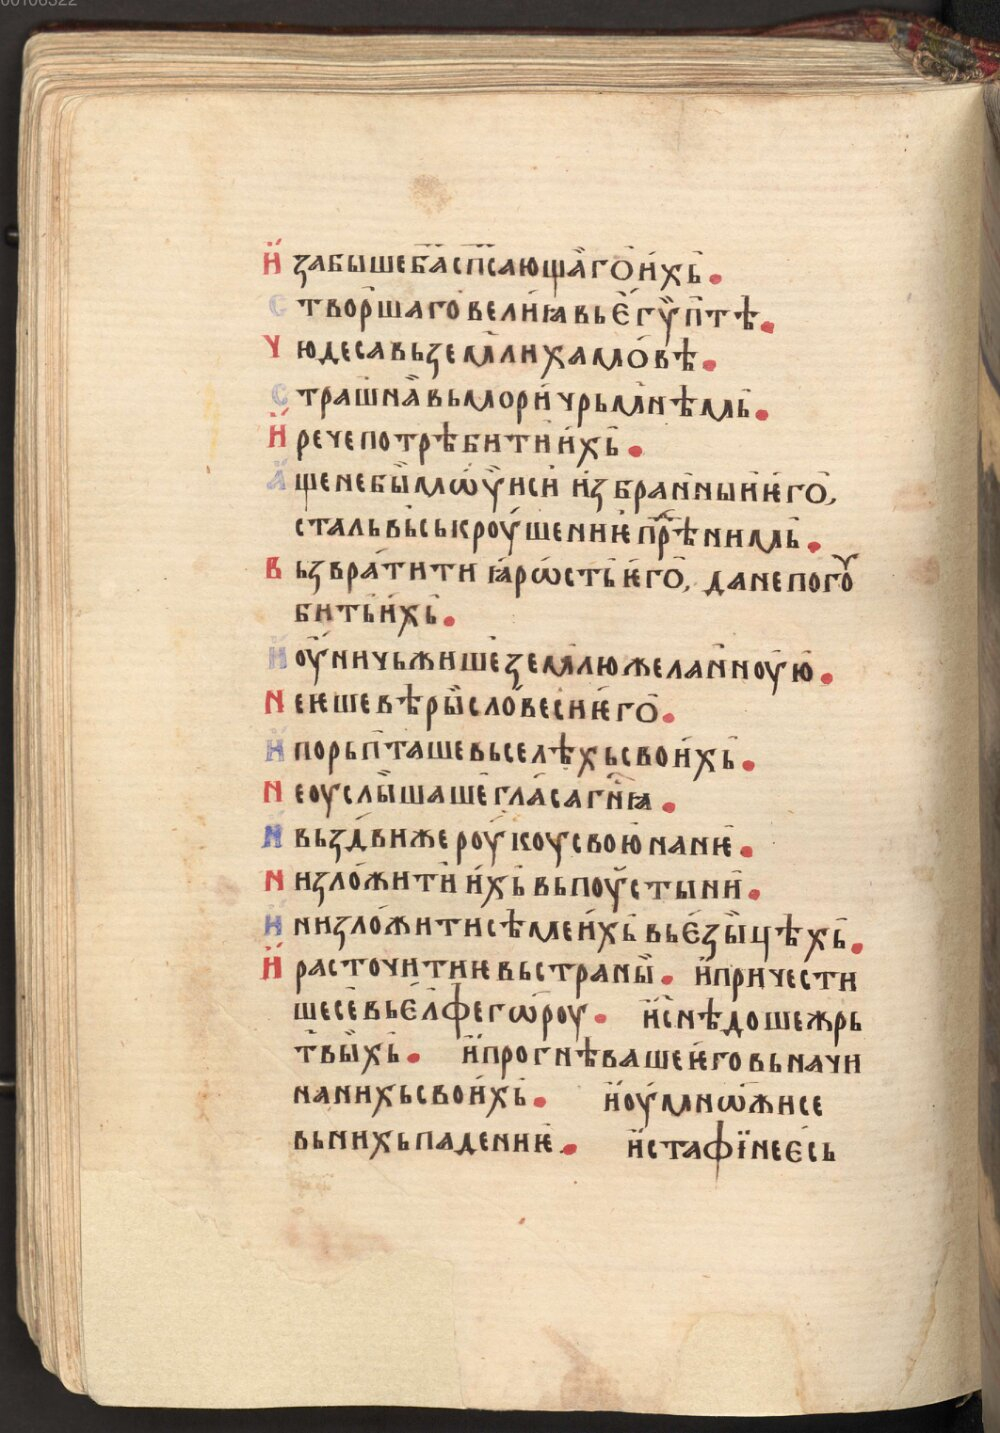 00106322
И҆̀ забыше б҃а сп҃сающа̀го и́хь.
Створ̾шаго велиꙗ вь є҆гѵ̈п̾тѣ.
Чюдеса вь земли хамо́вѣ.
Страш̾на̀ вь мори чрьм̾нѣмь.
И҆̀ рече потрѣбити и́хь.
А҆̀ще не бы̀ мѡѵ̈си и҆з̾бран̾ныи ѥго,
сталь вь скроу́шениѥ прѣ нимь.
Вьзвра́тити ꙗ҆рѡсть ѥ҆го, да не погоу
бить и́хь.
И҆̀ оу҆ничьжише землю желан̾ноую.
Не ѥше вѣры̀ словеси ѥ҆го.
И҆̀ порьп̾таше вь селѣхь свои́хь.
Не оуслы̀шаше гла́са г҃нꙗ.
И҆̀ вьздви́же роу́коу свою на нѥ.
Низло́жити и҆́хь вь поу́стыни.
И҆̀ низло́жити сѣме и́хь вь є҆зы̀цѣхь.
И҆̀ расточити ѥ вь страны̀. и҆ причести
ше се вь є҆л̾фегѡ́роу. и҆ снѣдоше жрь
твы̀хь. и҆ прогнѣваше ѥ҆го вь начи
нанихь свои́хь. и҆ оу́мнѡжи се
вь нихь падениѥ. и҆ ста фїнеесь